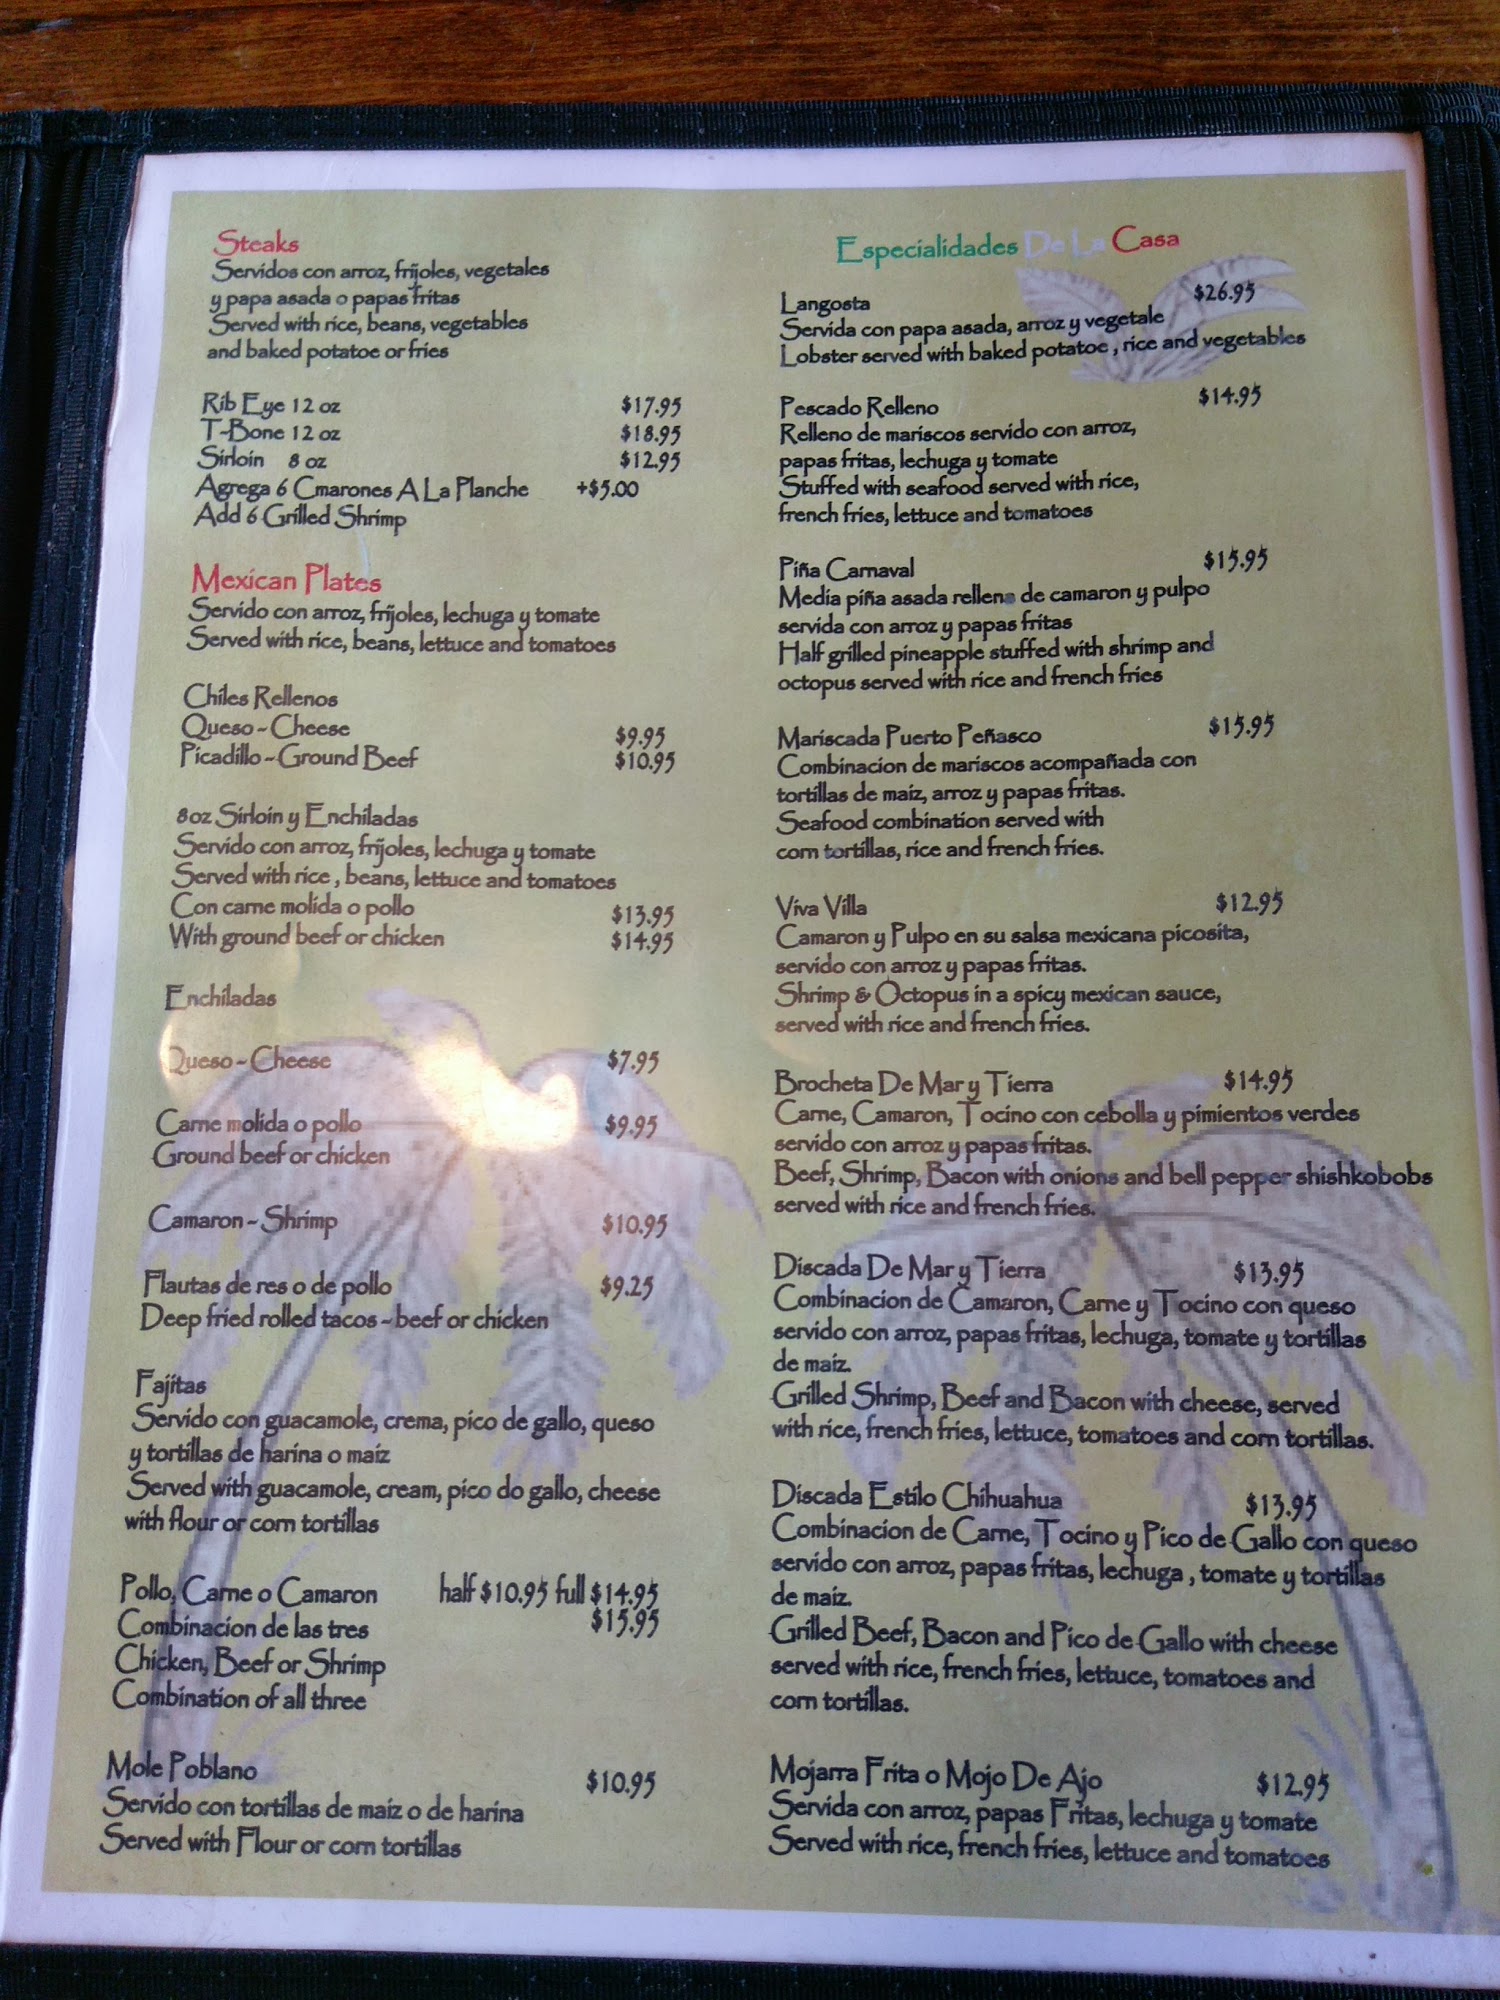 Steaks
Servidos con arroz, frijoles, vegetales
y papa asada o papas fritas
Served with rice, beans, vegetables
and baked potatoe or fries
Rib Eye 12 oz $17.95
T-Bone 12 oz $18.95
Sirloin 8 oz $12.95
Agrega 6 Cmarones A La Planche +$5.00
Add 6 Grilled Shrimp
Mexican Plates
Servido con arroz, frijoles, lechuga y tomate
Served with rice, beans, lettuce and tomatoes
Chiles Rellenos
Queso - Cheese $9.95
Picadillo - Ground Beef $10.95
8oz Sirloin y Enchiladas
Servido con arroz, frijoles, lechuga y tomate
Served with rice , beans, lettuce and tomatoes
Con carne molida o pollo $13.95
With ground beef or chicken $14.95
Enchiladas
Queso - Cheese $7.95
Carne molida o pollo $9.95
Ground beef or chicken
Camaron - Shrimp $10.95
Flautas de res o de pollo $9.25
Deep fried rolled tacos - beef or chicken
Fajitas
Servido con guacamole, crema, pico de gallo, queso
y tortillas de harina o maiz
Served with guacamole, cream, pico do gallo, cheese
with flour or corn tortillas
Pollo, Carne o Camaron half $10.95 full $14.95
Combinacion de las tres $15.95
Chicken, Beef or Shrimp
Combination of all three
Mole Poblano $10.95
Servido con tortillas de maiz o de harina
Served with Flour or corn tortillas
Especialidades De La Casa
Langosta $26.95
Servida con papa asada, arroz y vegetale
Lobster served with baked potatoe , rice and vegetables
Pescado Relleno $14.95
Relleno de mariscos servido con arroz,
papas fritas, lechuga y tomate
Stuffed with seafood served with rice,
french fries, lettuce and tomatoes
Piña Carnaval $15.95
Media piña asada rellena de camaron y pulpo
servida con arroz y papas fritas
Half grilled pineapple stuffed with shrimp and
octopus served with rice and french fries
Mariscada Puerto Peñasco $15.95
Combinacion de mariscos acompañada con
tortillas de maiz, arroz y papas fritas.
Seafood combination served with
corn tortillas, rice and french fries.
Viva Villa $12.95
Camaron y Pulpo en su salsa mexicana picosita,
servido con arroz y papas fritas.
Shrimp & Octopus in a spicy mexican sauce,
served with rice and french fries.
Brocheta De Mar y Tierra $14.95
Carne, Camaron, Tocino con cebolla y pimientos verdes
servido con arroz y papas fritas.
Beef, Shrimp, Bacon with onions and bell pepper shishkobobs
served with rice and french fries.
Discada De Mar y Tierra $13.95
Combinacion de Camaron, Carne y Tocino con queso
servido con arroz, papas fritas, lechuga, tomate y tortillas
de maiz.
Grilled Shrimp, Beef and Bacon with cheese, served
with rice, french fries, lettuce, tomatoes and corn tortillas.
Discada Estilo Chihuahua $13.95
Combinacion de Carne, Tocino y Pico de Gallo con queso
servido con arroz, papas fritas, lechuga , tomate y tortillas
de maiz.
Grilled Beef, Bacon and Pico de Gallo with cheese
served with rice, french fries, lettuce, tomatoes and
corn tortillas.
Mojarra Frita o Mojo De Ajo $12.95
Servida con arroz, papas Fritas, lechuga y tomate
Served with rice, french fries, lettuce and tomatoes